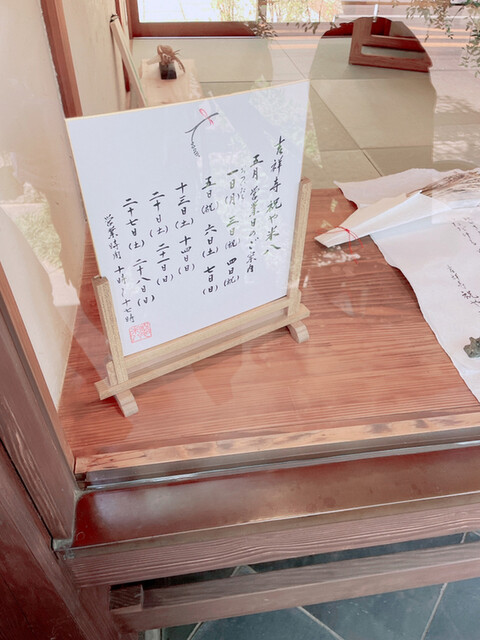 吉祥寺祝や米八
五月 営業日のご案内
一日(月) 三日(祝) 四日(祝)
五日(祝) 六日(土) 七日(日)
十三日(土) 十四日(日)
二十日(土) 二十一日(日)
二十七日(土) 二十八日(日)
営業時間 十時〜十七時